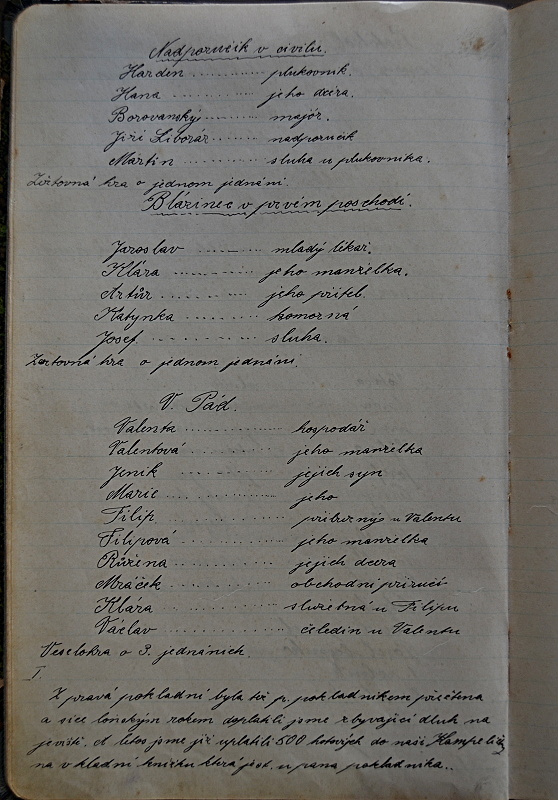 Nadporučík v civilu.
Harden .......... plukovník.
Hana .......... jeho dcera.
Borovanský .......... major.
Jiří Liborár .......... nadporučík
Martin .......... sluha u plukovníka.
Žertovná hra o jednom jednání.
Blázinec v prvém poschodí.
Jaroslav .......... mladý lékař.
Klára .......... jeho manželka.
Artůr .......... jeho přítel.
Katynka .......... komorná
Josef .......... sluha.
Žertovná hra o jednom jednání.
V. Pád.
Valenta .......... hospodář
Valentová .......... jeho manželka
Jeník .......... jejich syn
Marie .......... jeho
Filip .......... příbuzný u Valentu
Filipová .......... jeho manželka
Růžena .......... jejich dcera
Mráček .......... obchodní příručí
Klára .......... služebná u Filipu
Václav .......... čeledín u Valentu
Veselohra o 3. jednáních.
I.
Zpravá pokladní byla též p. pokladníkem přečtena
a sice loňským rokem doplatili jsme zbývající dluh na
jevišti. A letos jsme již uplatili 500 hotových do naší Kampeličky
na vkladní knížku která jest u pana pokladníka..